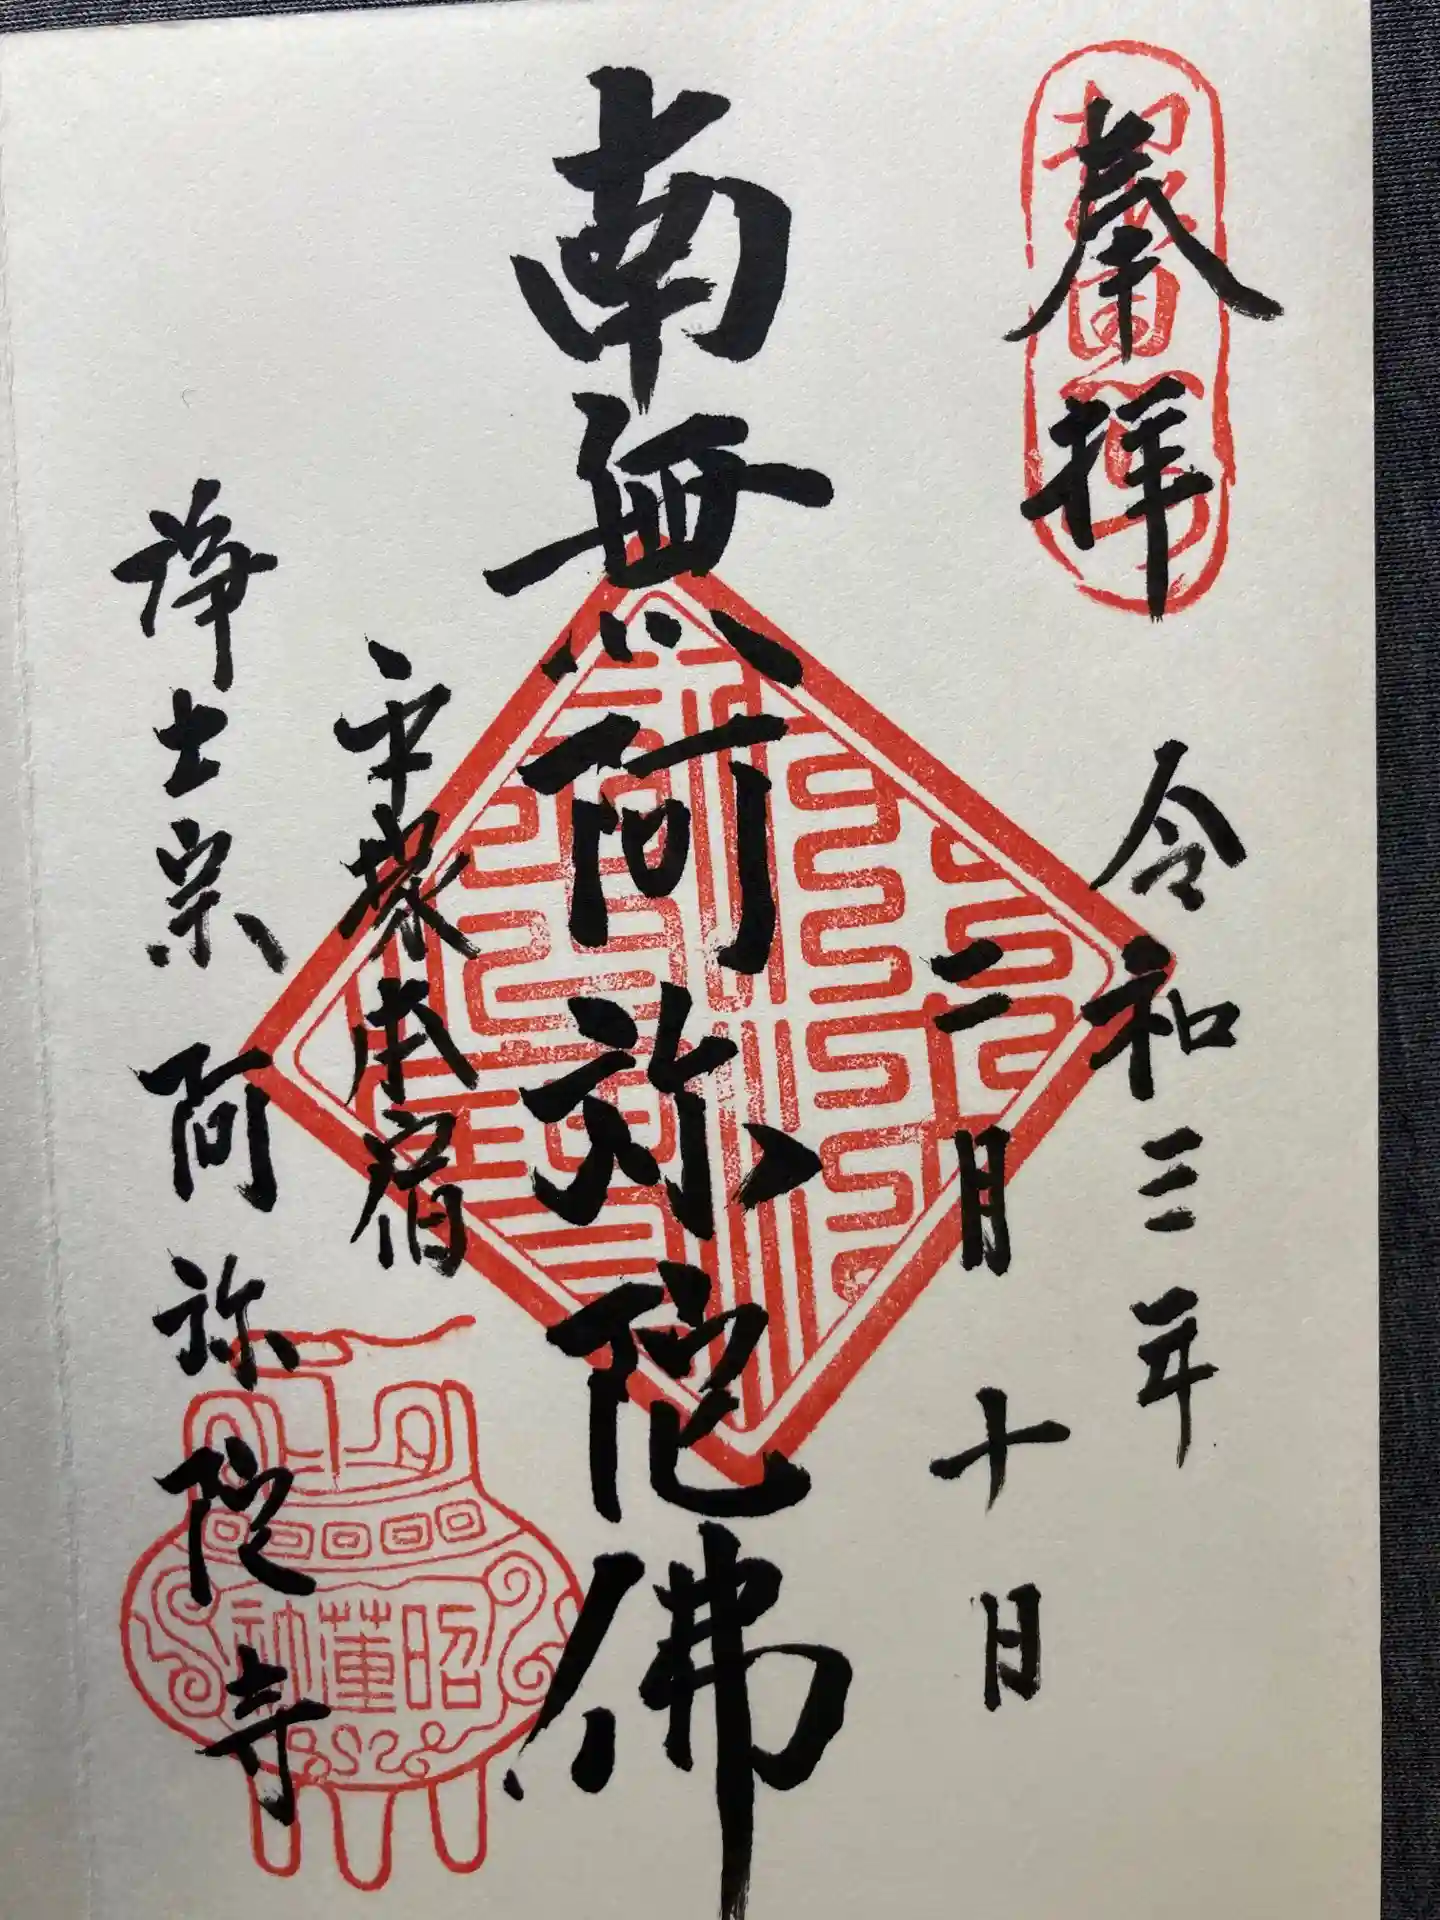 奉拝
令和三年
二月十日
南無阿弥陀佛
平塚本宿
浄土宗 阿弥陀寺
昭蓮